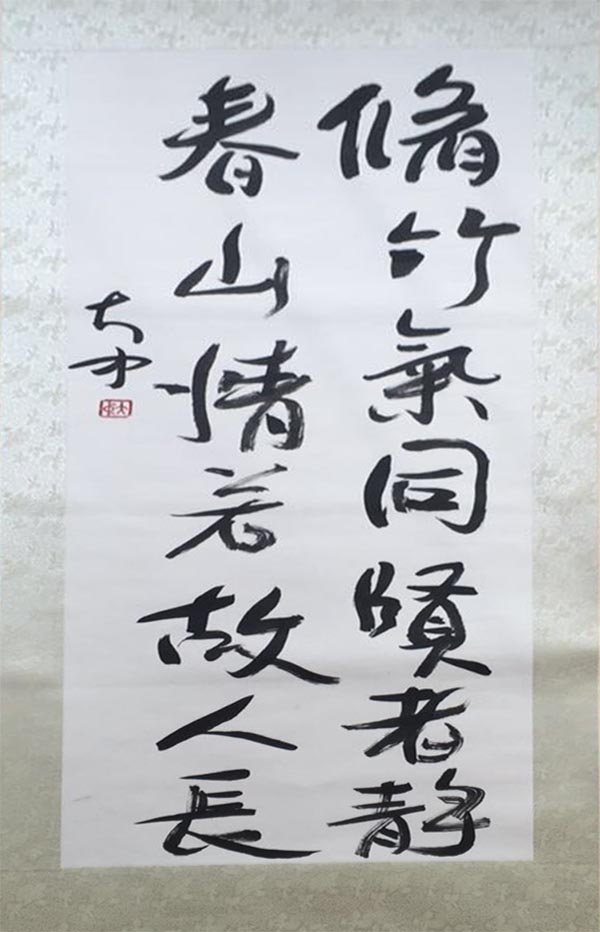 脩竹氣同賢者静
春山情若故人長
大中